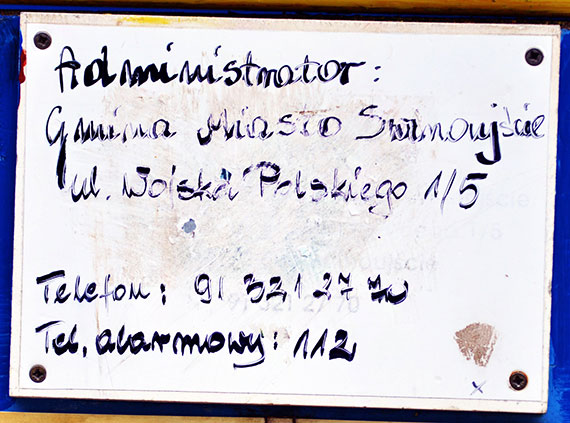 Administrator:
Gmina Miasto Świnoujście
ul. Wojska Polskiego 1/5
Telefon: 91 321 27 70
Tel. alarmowy: 112